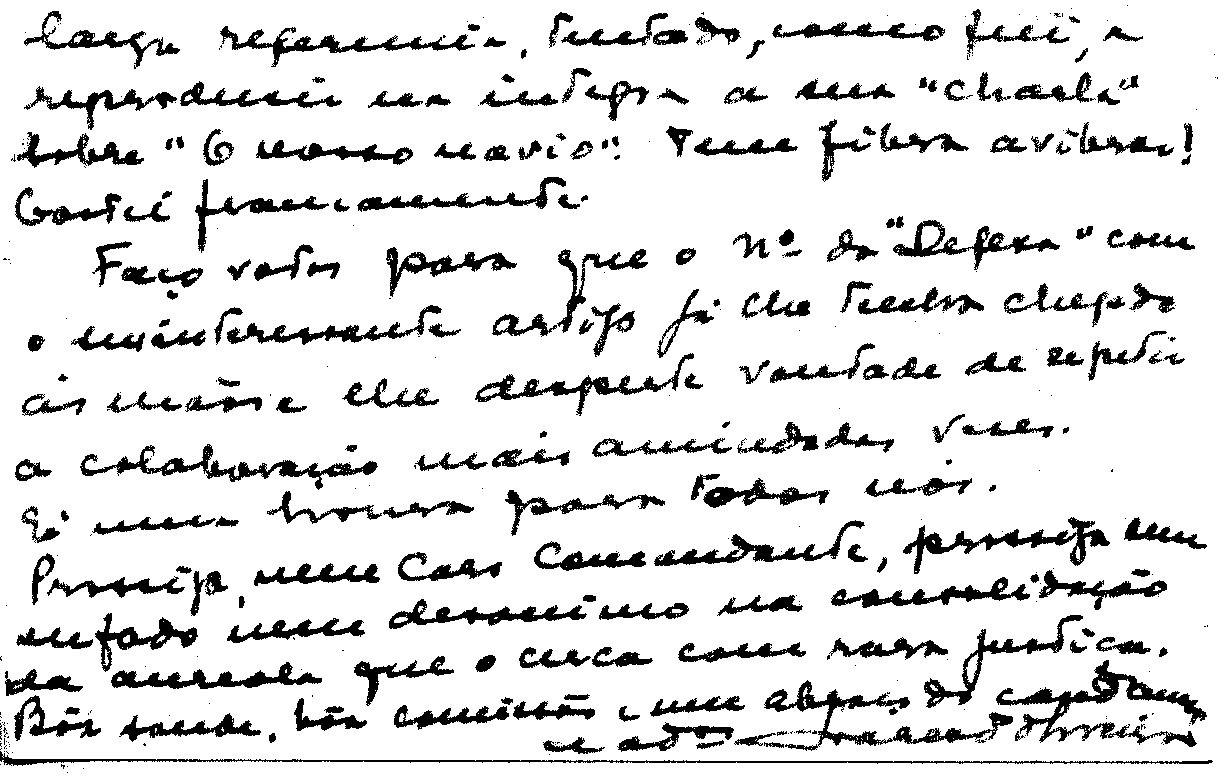 larga referencia, tentado, como fui, a
reproduzir na integra a sua "charla"
sobre "O nosso navio". Teve fibra a vibrar!
Gostei francamente.
Faço votos para que o nº da "Defesa" com
o interessante artigo já lhe tenha chegado
ás mãos e lhe desperte vontade de repetir
a colaboração mais amiudadas vezes.
É uma honra para todos nós.
Prossiga, meu caro Comandante, prossiga sem
enfado nem desanimo na consolidação
da aureola que o cerca com rara justiça.
Bôa saude, bôa comissão e um abraço do camarada
e adº